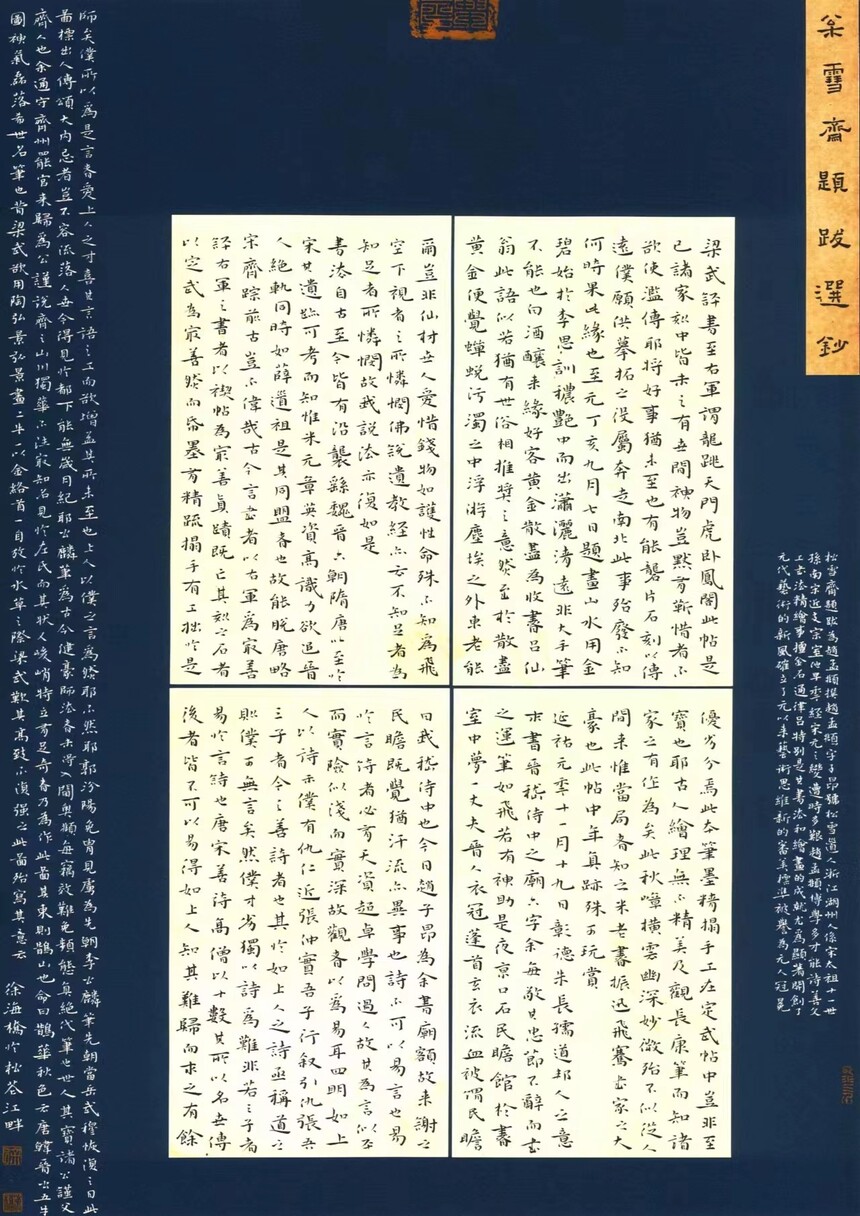 枀雪齋題跋選鈔
梁武評書至右軍謂龍跳天門虎卧鳳閣此帖是
已諸家刻中皆未之有世間神物豈默有靳惜者不
欲使濫傳耶將好事猶未至也有能礱片石刻以傳
遠僕願供摹拓之役屬奔走南北此事殆廢不知
何時果此緣也至元丁亥九月七日題畫山水用金
碧始於李思訓穠艷中而出瀟灑清遠非大手筆
不能也向酒釀来緣好客黃金散盡為收書吕仙
翁此語似若猶有世俗相推獎之意然至於散盡
黃金便覺蟬蛻污濁之中浮游塵埃之外東老能
爾豈非仙材世人愛惜錢物如護性命殊不知為飛
空下視者之所憐憫佛說遺教經亦云不知足者為
知足者所憐憫故我說法亦復如是
書法自古至今皆有沿襲繇魏晉六朝隋唐以至於
宋其遺跡可考而知惟米元章英資高識力欲追晉
人絕軌同時如薛道祖是其同盟者也故能脫唐略
宋齊踪前古豈不偉哉古今言書者以右軍為宸善
評右軍之書者以禊帖為宸善真蹟既亡其刻之石者
以定武為宸善然而昏墨有精疏搨手有工拙於是
優劣分焉此本筆墨精搨手工在定武帖中豈非至
寶也耶古人繪理無不精美及觀長康筆而知諸
家之有作為矣此秋嶂橫雲幽深妙微殆不似從人
間来惟當局者知之米老書振迅飛騫書家之大
豪也此帖中年真跡殊可玩賞
延祐元季十一月十九日彰德朱長孺道邦人之意
求書晉嵇侍中之廟六字余每敬其忠節不辭而書
之運筆如飛若有神助是夜京口石民瞻館於書
室中夢一丈夫晉人衣冠蓬首玄衣流血被面謂民瞻
曰我嵇侍中也今日趙子昂為余書廟額故来謝之
民瞻既覺猶汗流亦異事也詩不可以易言也易
於言詩者必有天資超卓學問過人故其為言似平
而實險似淺而實深故觀者以為易耳四明如上
人以詩示僕有仇仁近張仲實吾子行叙引仇張吾
三子者今之善詩者也其於如上人之詩亟稱道之
則僕可無言矣然僕才劣獨以詩為難非若三子者
易於言詩也唐宋善詩高僧以十數其所以名世傳
後者皆不可以易得如上人知其難歸而求之有餘
師矣僕所以為是言者愛上人之才喜其言語之工而欲增益其所未至也上人以僕之言為然耶不然耶郭汾陽免胄見虜為先朝李公麟筆先朝當岳武穆恢復之日此
啚標出人傳頌大內忌者豈不容流落人世今得見於都下能無歲月紀耶公麟筆為古今健豪師法者未嘗入閫奧頫每竊效難免頓態真絕代筆也世人其寶諸公謹父
齊人也余通守齊州罷官来歸為公謹說齊之山川獨華不注冣知名見於左氏而其狀又峻峭特立有足奇者乃為作此啚其東則鵲山也命曰鵲華秋色云唐韓晉公五牛
圖神氣磊落希世名筆也昔梁武欲用陶弘景弘景畫二牛一以金絡首一自放於水草之際梁武歎其高致不復强之此啚殆寫其意云
徐海橋於松荅江畔
松雪齋題跋為趙孟頫撰趙孟頫字子昂號松雪道人浙江湖州人係宋太祖十一世
孫南宋近支宗室他早季經宋元之變遭時多艱趙孟頫博學多才能詩善文
工書法精繪事擅金石通律吕特別是其書法和繪畫的成就尤為顯著開創了
元代藝術的新風確立了元以来藝術思維新的審美標準被譽為元人冠冕